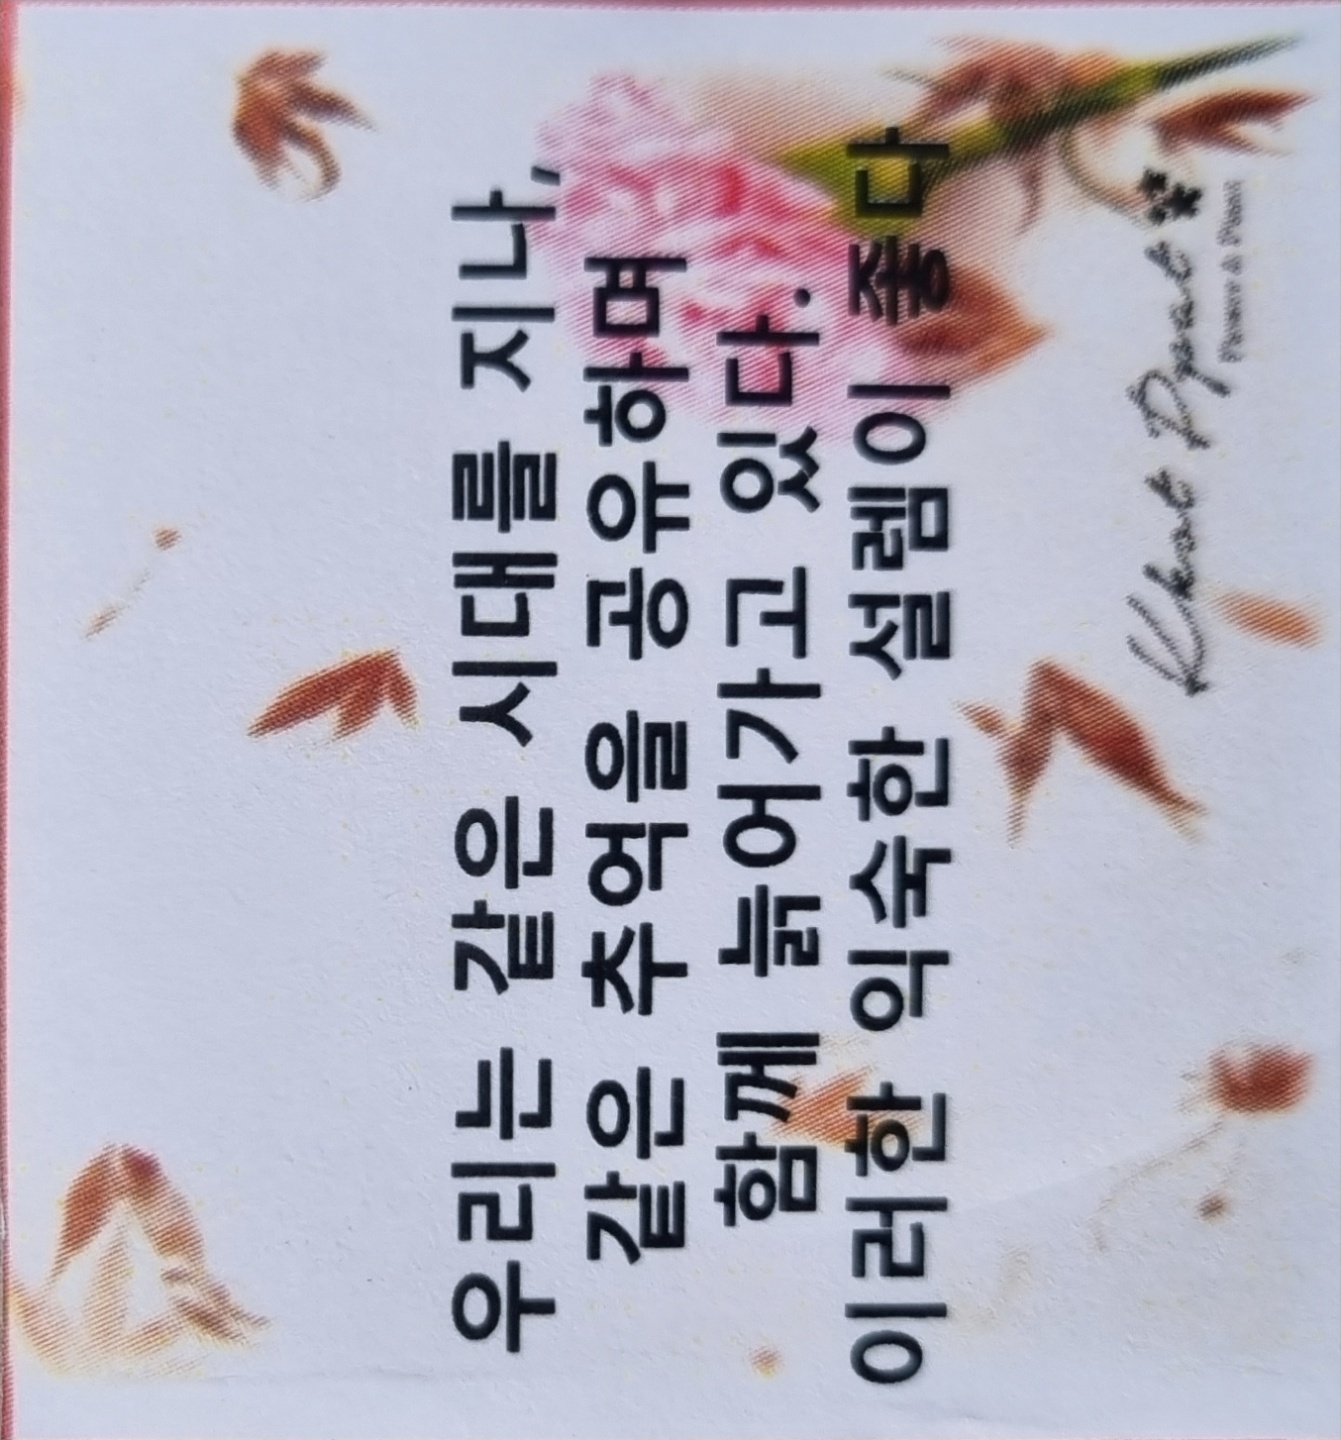 우리는 같은 시대를 지나,
같은 추억을 공유하며
함께 늙어가고 있다.
이러한 익숙한 설렘이 좋다
Flower & Plant